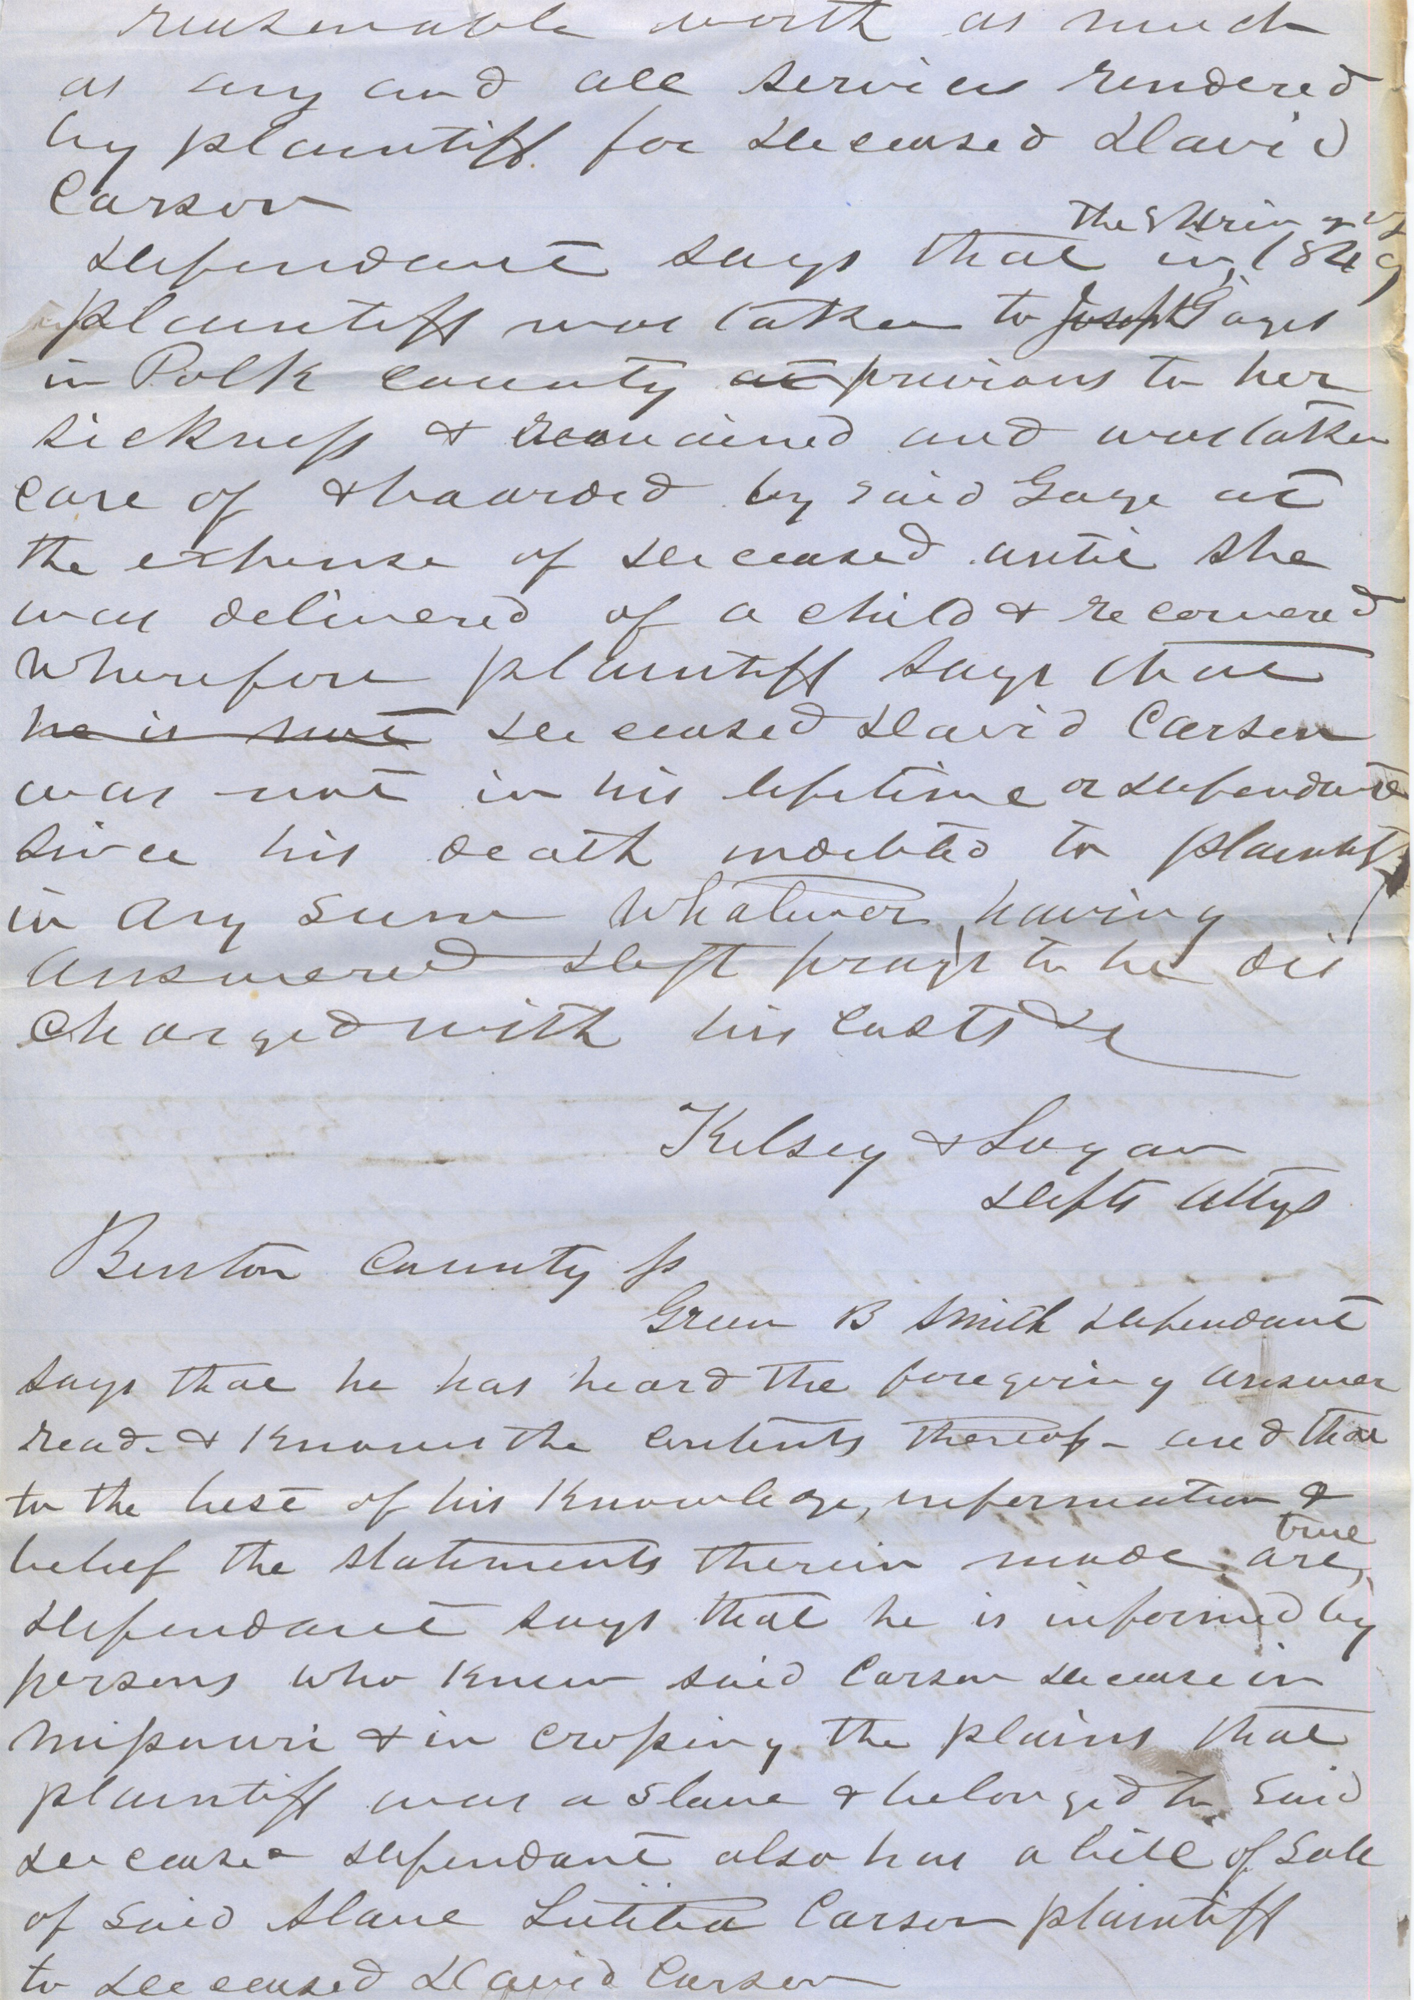 reasonable worth as much
as any and all services rendered
by plaintiff for deceased David
Carson
the Spring of
defendant says that in 1849
plaintiff was taken to Joseph Gages
in Polk county at previous to her
sickness & remained and was taken
care of & boarded by said Gage at
the expense of deceased until she
was delivered of a child & recovered
Wherefore plaintiff says that
he is not deceased David Carson
was not in his lifetime or defendant
since his death indebted to plaintiff
in any sum whatever, having
answered deft prays to be dis
charged with his costs &c
Kelsey & Logan
Defts Attys
Benton County ss
Green B Smith defendant
says that he has heard the foregoing answer
read & Knows the contents thereof - and that
to the best of his Knowledge, information &
true
belief the statements therein made are,
defendant says that he is informed by
persons who knew said Carson decease in
Missouri & in crossing the plains that
plaintiff was a slave & belonged to said
decease defendant also has a bill of sale
of said slave Letitia Carson plaintiff
to deceased David Carson